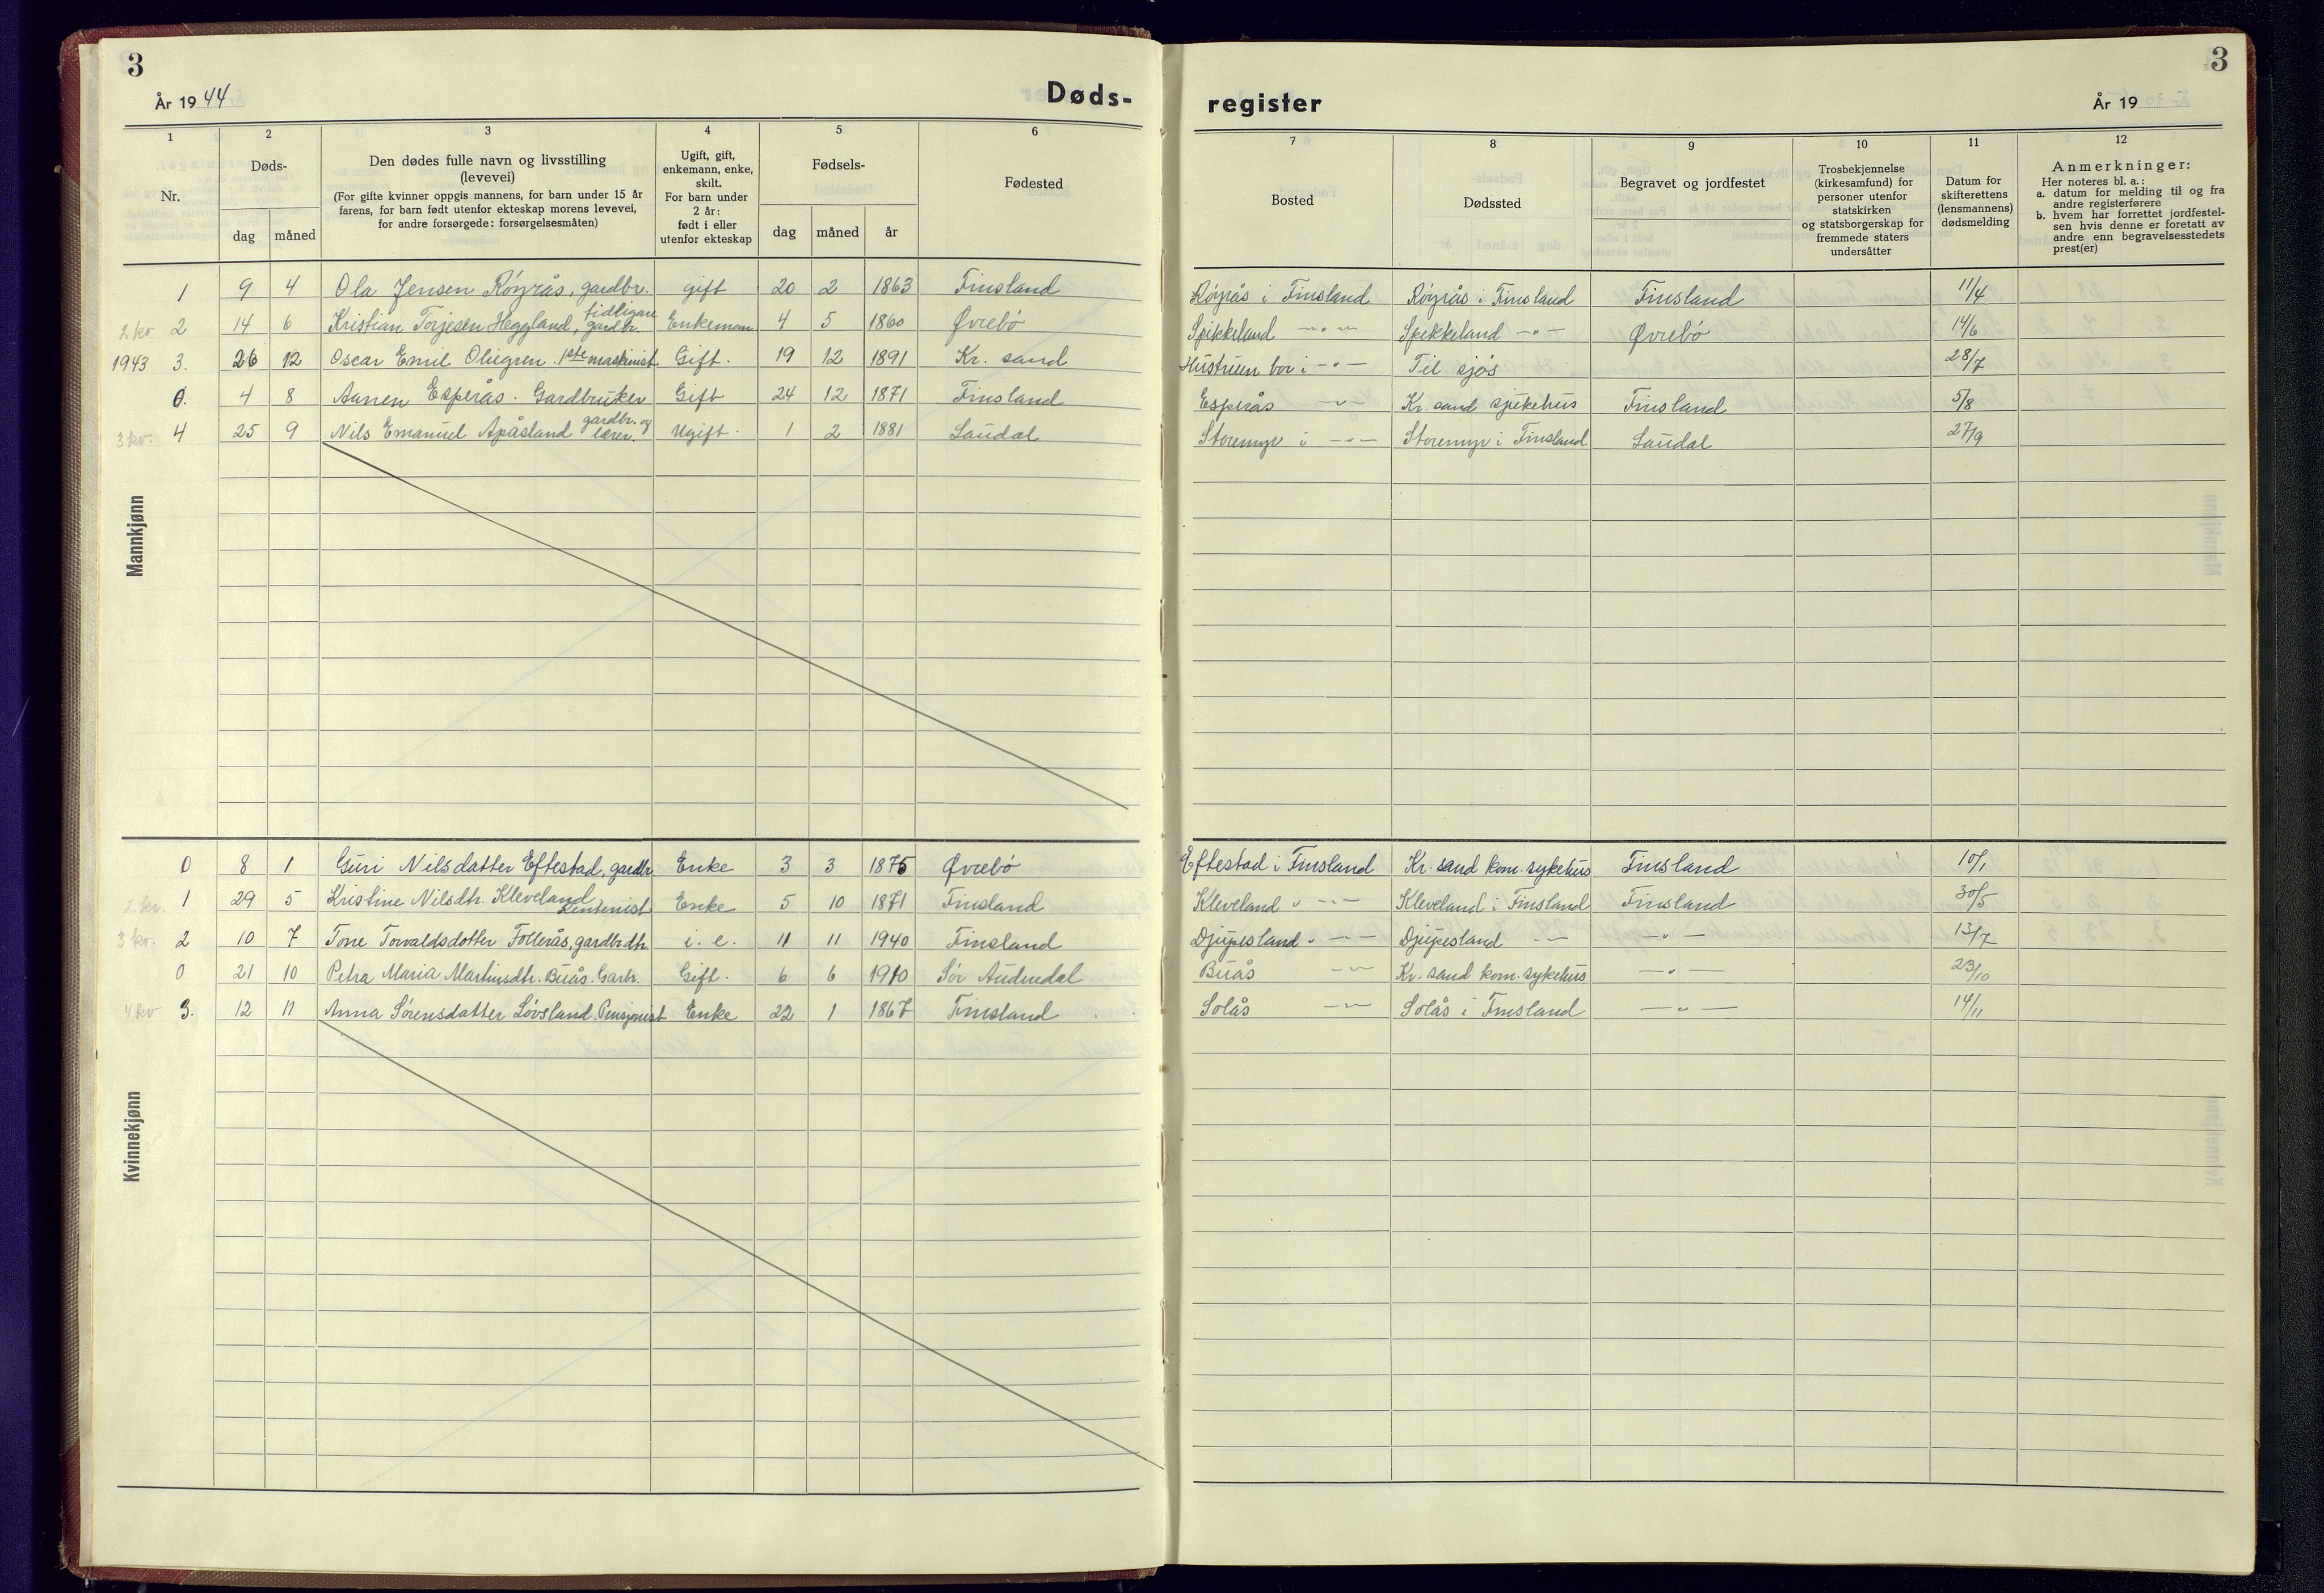 3
År 1944
Døds-
register
År 19
3
1
2
3
4
5
6
7
8
9
10
11
12
Nr.
Døds-
dag
måned
Den dødes fulle navn og livsstilling
(levevei)
(For gifte kvinner oppgis mannens, for barn under 15 år
farens, for barn født utenfor ekteskap morens levevei,
for andre forsørgede: forsørgelsesmåten)
Ugift, gift,
enkemann, enke,
skilt.
For barn under
2 år:
født i eller
utenfor ekteskap
Fødsels-
dag
måned
år
Fødested
Bosted
Dødssted
Begravet og jordfestet
Trosbekjennelse
(kirkesamfund) for
personer utenfor
statskirken
og statsborgerskap for
fremmede staters
undersåtter
Datum for
skifterettens
(lensmannens)
dødsmelding
Anmerkninger:
Her noteres bl. a.:
a. datum for melding til og fra
andre registerførere
b. hvem har forrettet jordfestel-
sen hvis denne er foretatt av
andre enn begravelsesstedets
prest(er)
Mannkjønn
1 9 4 Ola Jensen Röyrås, gardbr. gift 20 2 1863 Finsland Röyrås i Finsland Röyrås i Finsland Finsland 11/4
2 kv 2 14 6 Kristian Torjesen Heggland, tidligare gardbr. Enkemann 4 5 1860 Øvrebö Spikkeland -"- Spikkeland -"- Øvrebö 14/6
1943 3. 26 12 Oscar Emil 1ste maskinist. Gift. 19 12 1891 Kr. sand Hustruen bor i -"- Til sjös 28/7
0. 4 8 Aanen Esperås. Gardbruker Gift 24 12 1871 Finsland Esperås -"- Kr. sand sjukehus Finsland 5/8
3 kv. 4 25 9 Nils Emanuel Apåsland gardbr. og lærer. Ugift. 1 2 1881 Laudal Storemyr i -"- Storemyr i Finsland Laudal 27/9
Kvinnekjønn
0 8 1 Guri Nilsdatter Eftestad, gardbr. Enke 3 3 1875 Øvrebö Eftestad i Finsland Kr. sand kom. sykehus Finsland 10/1
2 kv. 1 29 5 Kristine Nilsdtr. Kleveland, Rentenist Enke 5 10 1871 Finsland Kleveland " -"- Kleveland i Finsland Finsland 30/5
3 kv. 2 10 7 Tone Torvaldsdotter Follerås, gardbr.dtr. i. e. 11 11 1940 Finsland Djupesland " -"- Djupesland -"- -"- 13/7
0 21 10 Petra Maria Martinsdtr. Buås. Garbr. Gift. 6 6 1910 Sör Audnedal Buås -"- Kr. sand kom. sykehus -"- 23/10
4 kv 3. 12 11 Anna Sörensdatter Lövsland. Pensjonist Enke 22 1 1867 Finsland Solås -"- Solås i Finsland -"- 14/11